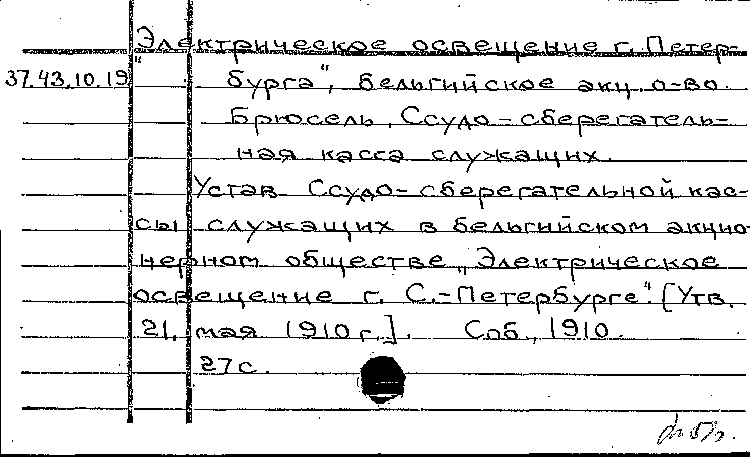 „Электрическое освещение г. Петер-
37.43.10.19 бурга“, бельгийское акц. о-во.
Брюсель. Ссудо-сберегатель-
ная касса служащих.
Устав Ссудо-сберегательной кас-
сы служащих в бельгийском акцио-
нерном обществе „Электрическое
освещение г. С.-Петербурге“. [Утв.
21. мая 1910 г.]. Спб., 1910.
27 с.